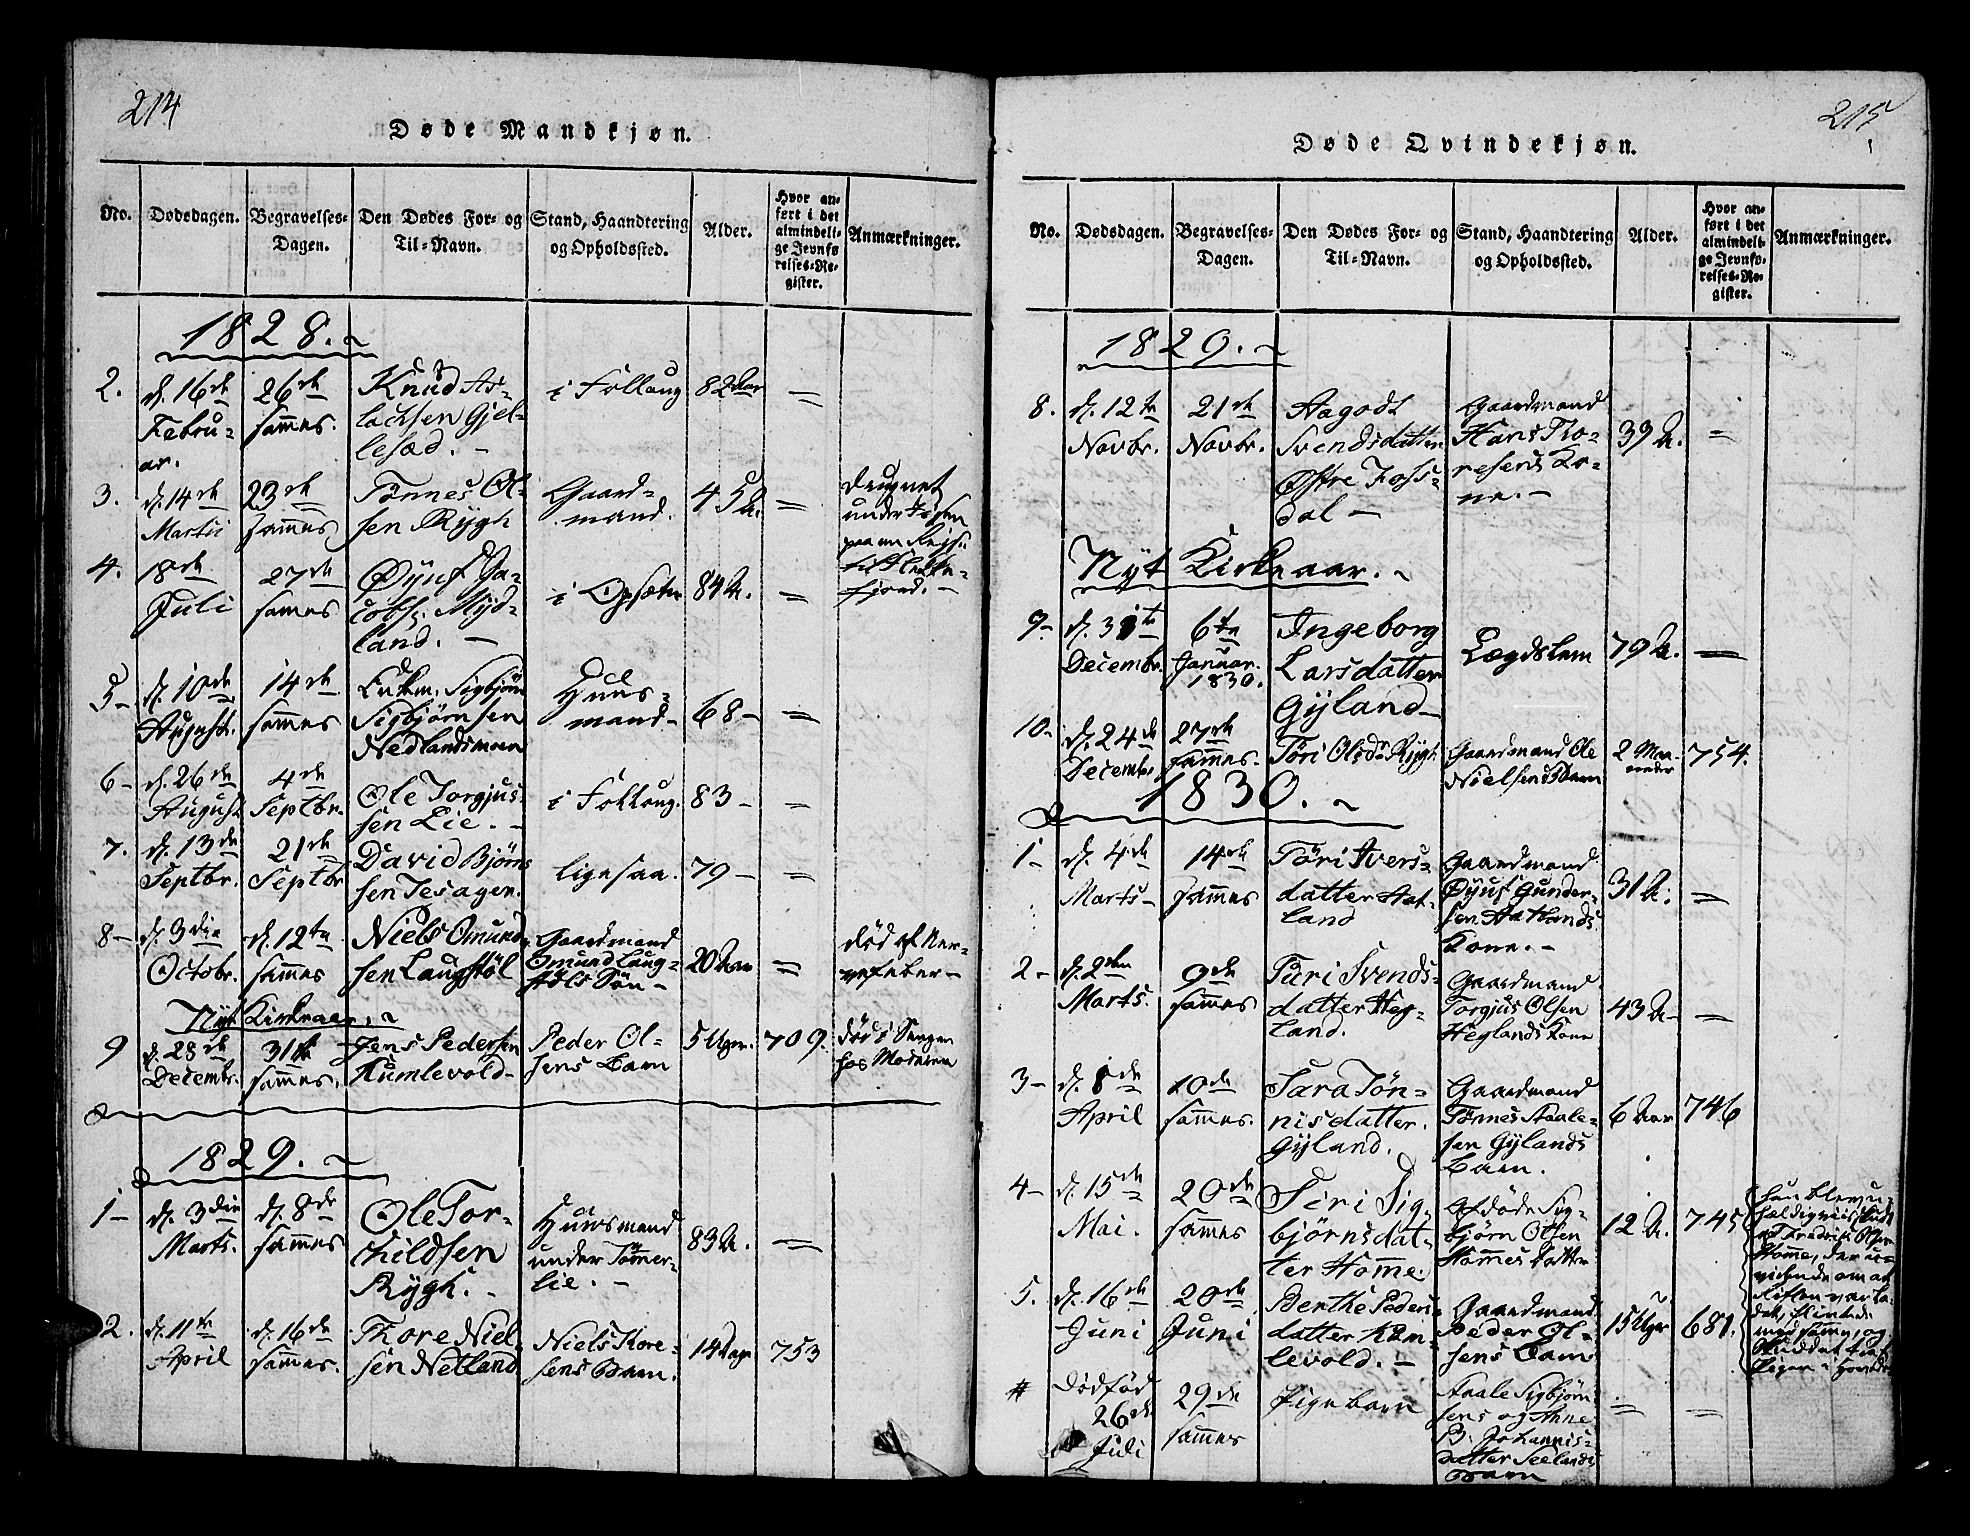 214
Døde Mandkjøn.
No. Dødsdagen. Begravelses-Dagen. Den Dødes For- og Til-Navn. Stand, Haandtering og Opholdssted. Alder. Hvor anført i det almindelige Jevnførelses-Register. Anmærkninger.
1828.
2. d. 16de Februar. 26de sammes. Knud Aslacksen Gjellesæd. i Follaug 82 Aar =
3. d. 14de Martii 23de sammes Tønnes Olsen Rygh Gaardmand. 45 A. = Drugnet under Isen paa en Rejse til Flekkefjord.
4. 18de Juli 27de sammes Øyuf Jacobs. Mydland. i Opsæter 84 A. =
5 d. 10de August. 14de sammes Enkem. Sigbjørn Sigbjørnsen Nedlandsmoen Huusmand 68 =
6 d. 26de August 4de Septbr. Ole Torgjussen Lie. i Follaug. 83 =
7. d. 13de Septbr. 21de Septbr David Bjørnsen Tesagen. ligesaa. 79 =
8 d. 3die Octobr. d. 12te sammes Niels Omundsen Laugstøl Gaardmand Omund Laugstøls Søn 20 Aar = Død af Nervefeber
Nyt Kirkeaar.
9 d. 28de Decembr. 31te sammes. Jens Pedersen Kumlevold Peder Olsens Barn 5 Uger. 709. Død i Sengen hos Moderen
1829.
1 d. 3die Marts. d. 8de sammes Ole Torchildsen Rygh. Huusmand under Tømerlie. 83 A. =
2. d. 11te April d. 16de sammes. Thore Nielsen Netland Niels Thoresens Barn. 14 Dage 753
215
Døde Qvindekjøn.
No. Dødsdagen. Begravelses-Dagen. Den Dødes For- og Til-Navn. Stand, Haandtering og Opholdssted. Alder. Hvor anført i det almindelige Jevnførelses-Register. Anmærkninger.
1829.
8. d. 12te Novbr. 21de Novbr. Aagodt Svendsdatter Østre Fossdal Gaardmand Hans Thoresens Kone. 39 A. =
Nyt Kirkeaar.
9 d. 31te Decembr. 6te Januar. 1830. Ingeborg Larsdatter Gyland Lægdslem 79 A. =
10 d. 24de Decembr 27de sammes. Tøri Olsdr Rygh Gaardmand Ole Nielsens Barn 2 Maaneder 754.
1830.
1 d. 4de Marts 14de sammes Tøri Iversdatter Aatland Gaardmand Øyuf Gundersen Aatlands Kone. 31 A. =
2 d. 2den Marts. 9de sammes Turi Svendsdatter Hegland. Gaardmand Torgjus Olsen Heglands Kone 43 A =
3 d. 1de April 10de sammes. Sara Tønnisdatter Gyland. Gaardmand Tønnes Aalesen Gylands Barn. 6 Aar 746
4 d. 15de Mai. 20de sammes Siri Sigbjørnsdatter Home. Afdøde Sigbjørn Olsen Hommes Datter 12 A. 745 Hun blev uheldigviis skudt af Fredrik Olsen Homme, der uvidende om at Riflen var ladet,
5. d. 16de Juni 20de Juni Berthe Pedersdatter Kumlevold. Gaardmand Peder Olsens Barn 15 Uger 681.
# Dødfød 26de Juli 29de sammes Pigebarn Aale Sigbjørnsens og Anne B. Johannisdatter Seelands Barn = =